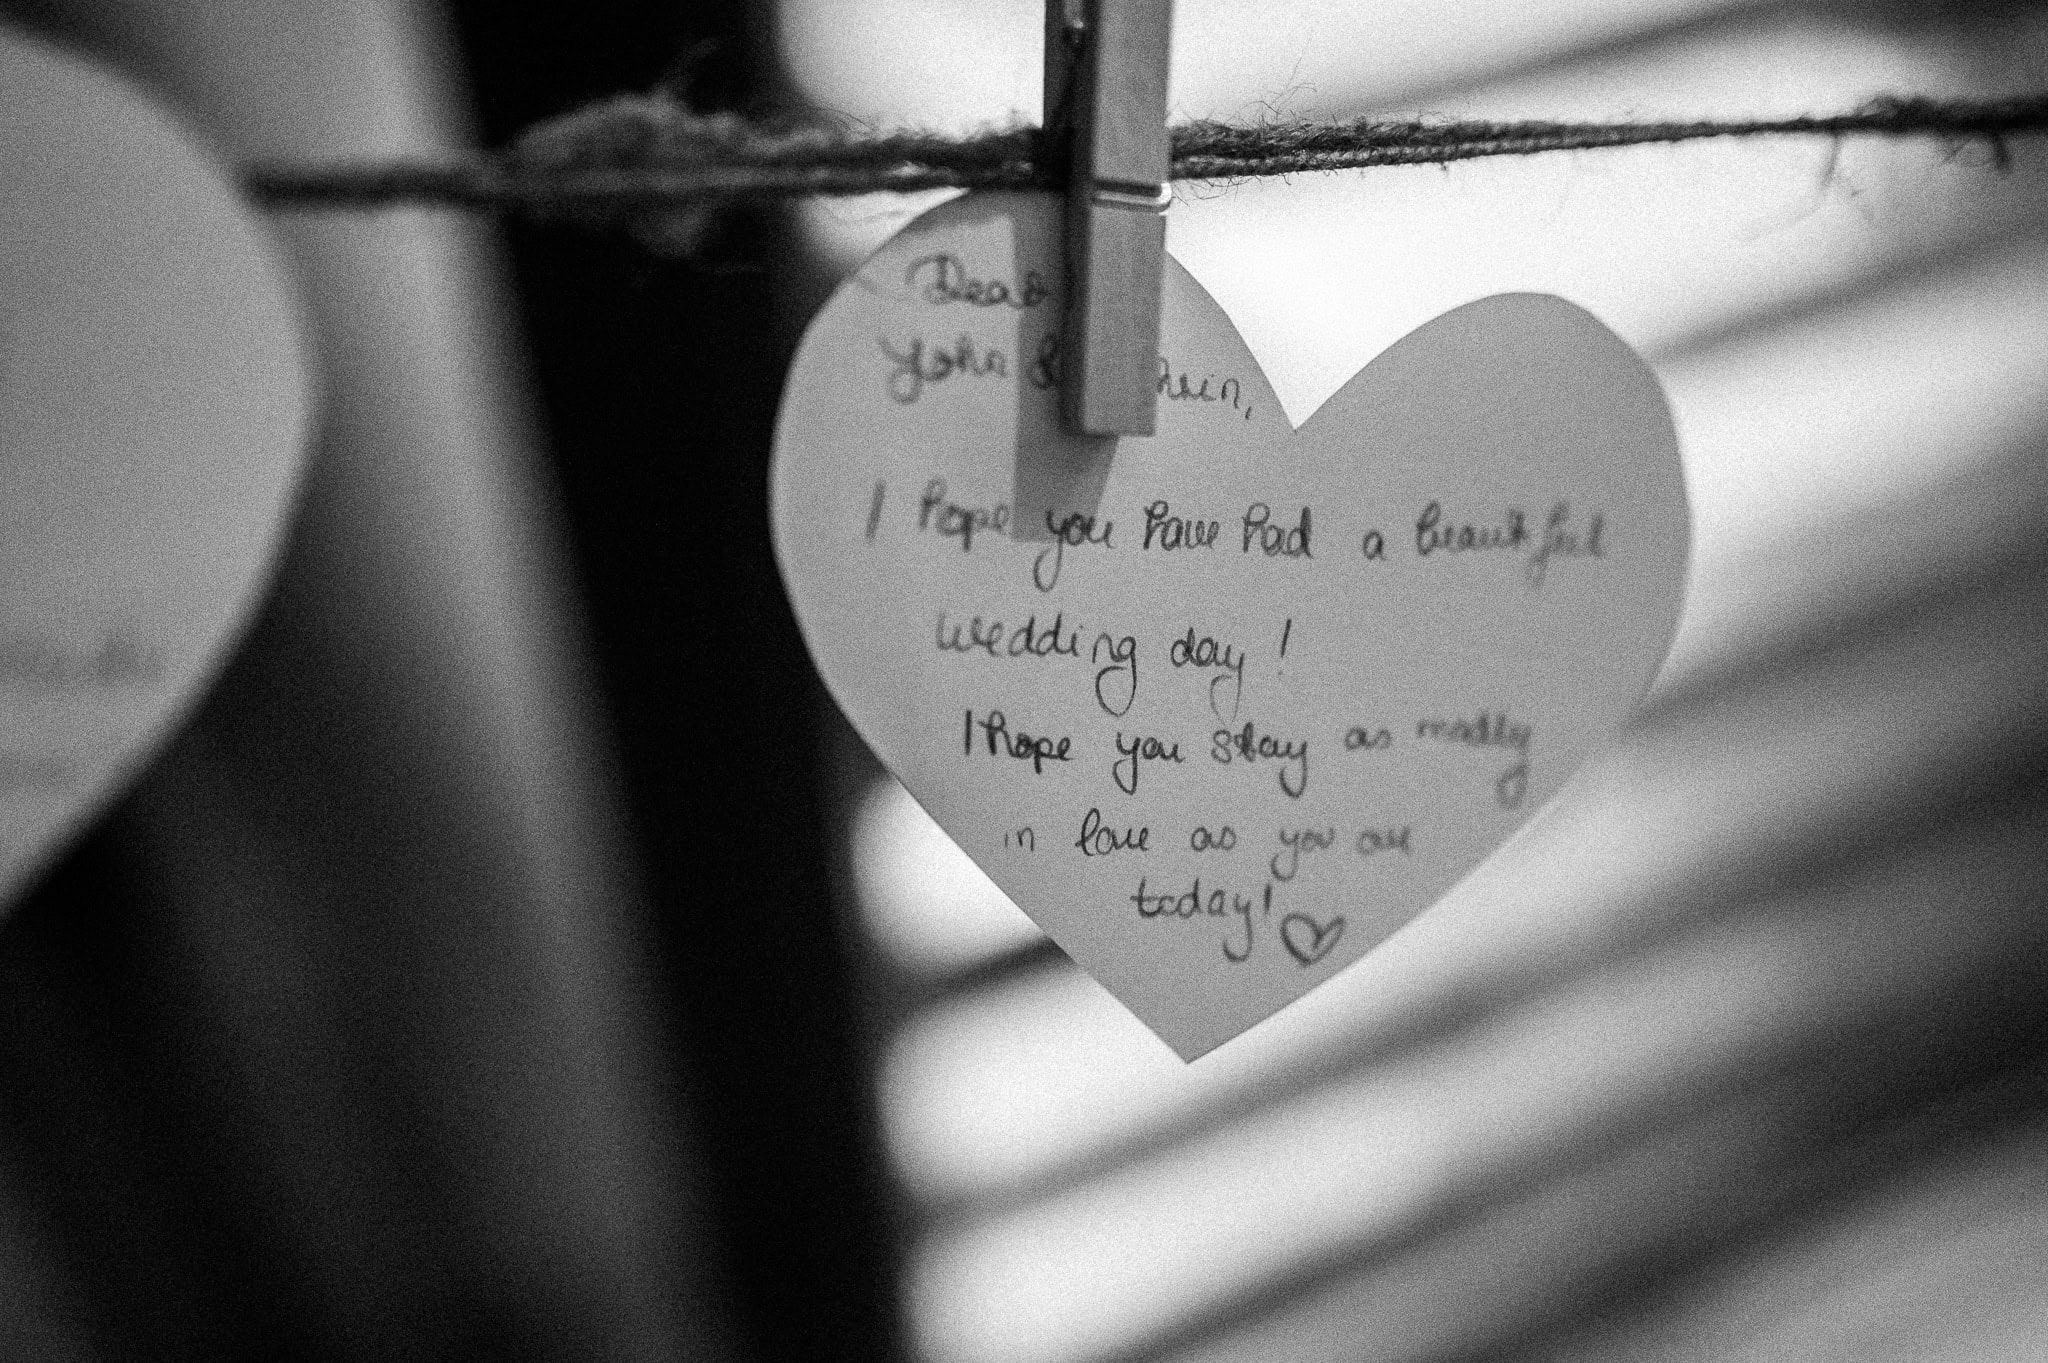 Dear
John &
I hope you have had a beautiful
wedding day!
I hope you stay as madly
in love as you are
today!